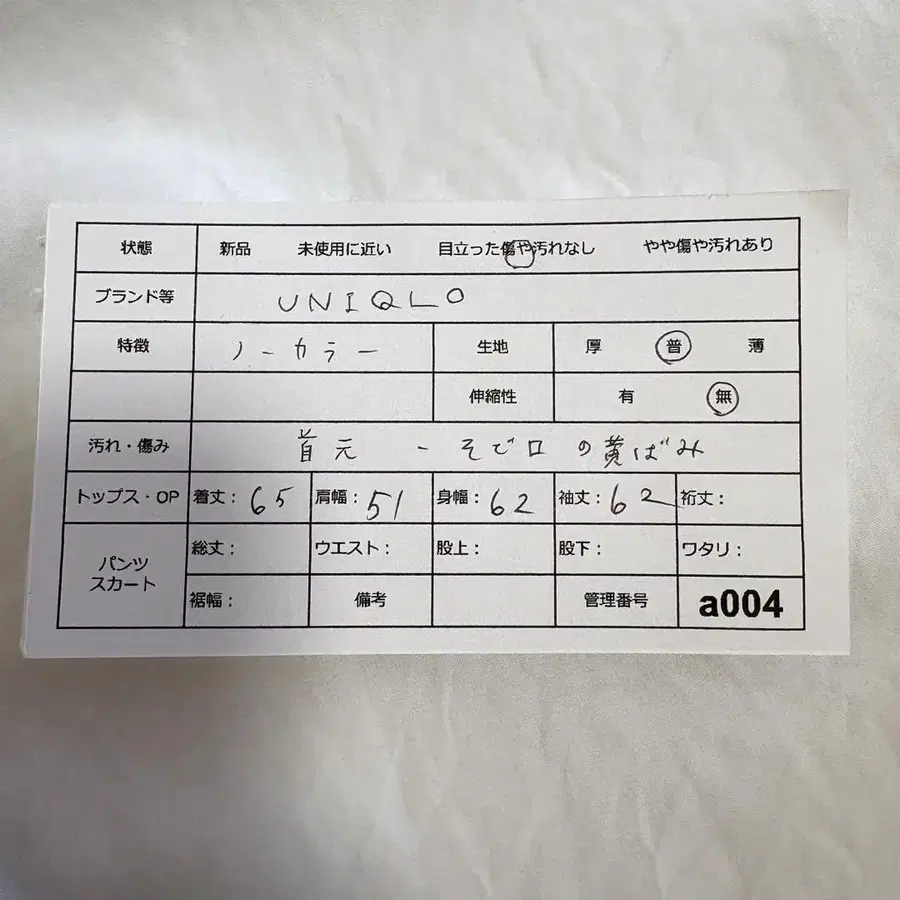 状態 新品 未使用に近い 目立った傷や汚れなし やや傷や汚れあり
ブランド等 UNIQLO
特徴 ノーカラー 生地 厚 普 薄
伸縮性 有 無
汚れ・傷み 首元 - そで口の黄ばみ
トップス・OP 着丈：65 肩幅：51 身幅：62 袖丈：62 裄丈：
パンツ スカート 総丈： ウエスト： 股上： 股下： ワタリ：
裾幅： 備考 管理番号 a004